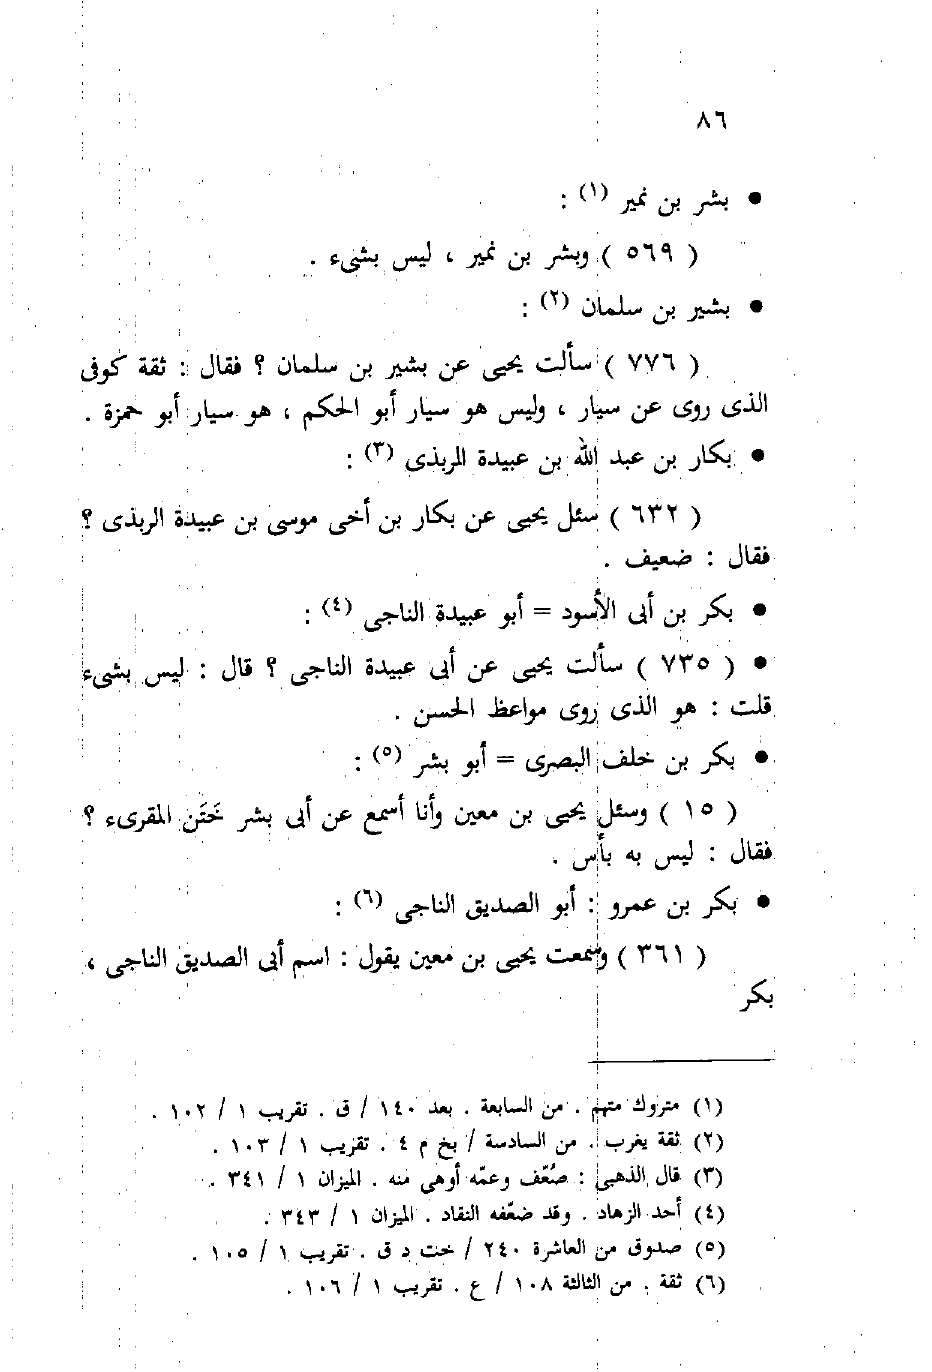 ٨٦
● بشر بن نمير (١) :
( ٥٦٩ ) وبشر بن نمير ، ليس بشىء .
● بشير بن سلمان (٢) :
( ٧٧٦ ) سألت يحيى عن بشير بن سلمان ؟ فقال : ثقة كوفى
الذى روى عن سيار ، وليس هو سيار أبو الحكم ، هو سيار أبو حمزة .
● بكار بن عبد الله بن عبيدة المربذى (٣) :
( ٦٣٢ ) سئل يحيى عن بكار بن أخى موسى بن عبيدة الربذى ؟
فقال : ضعيف .
● بكر بن أبى الأسود = أبو عبيدة الناجى (٤) :
● ( ٧٣٥ ) سألت يحيى عن أبى عبيدة الناجى ؟ قال : ليس بشىء
قلت : هو الذى روى مواعظ الحسن .
● بكر بن خلف البصرى = أبو بشر (٥) :
( ١٥ ) وسئل يحيى بن معين وأنا أسمع عن أبى بشر خَتَن المقرىء ؟
فقال : ليس به بأس .
● بكر بن عمرو : أبو الصديق الناجى (٦) :
( ٣٦١ ) وسمعت يحيى بن معين يقول : اسم أبى الصديق الناجى ،
بكر
(١) متروك متهم . من السابعة . بعد ١٤٠ / ق . تقريب ١ / ١٠٢ .
(٢) ثقة يغرب . من السادسة / بخ م ٤ . تقريب ١ / ١٠٣ .
(٣) قال الذهبى : ضُعّف وعمّه أوهى منه . الميزان ١ / ٣٤١ .
(٤) أحد الزهاد . وقد ضعّفه النقاد . الميزان ١ / ٣٤٣ .
(٥) صدوق من العاشرة ٢٤٠ / خت د ق . تقريب ١ / ١٠٥ .
(٦) ثقة . من الثالثة ١٠٨ / ع . تقريب ١ / ١٠٦ .